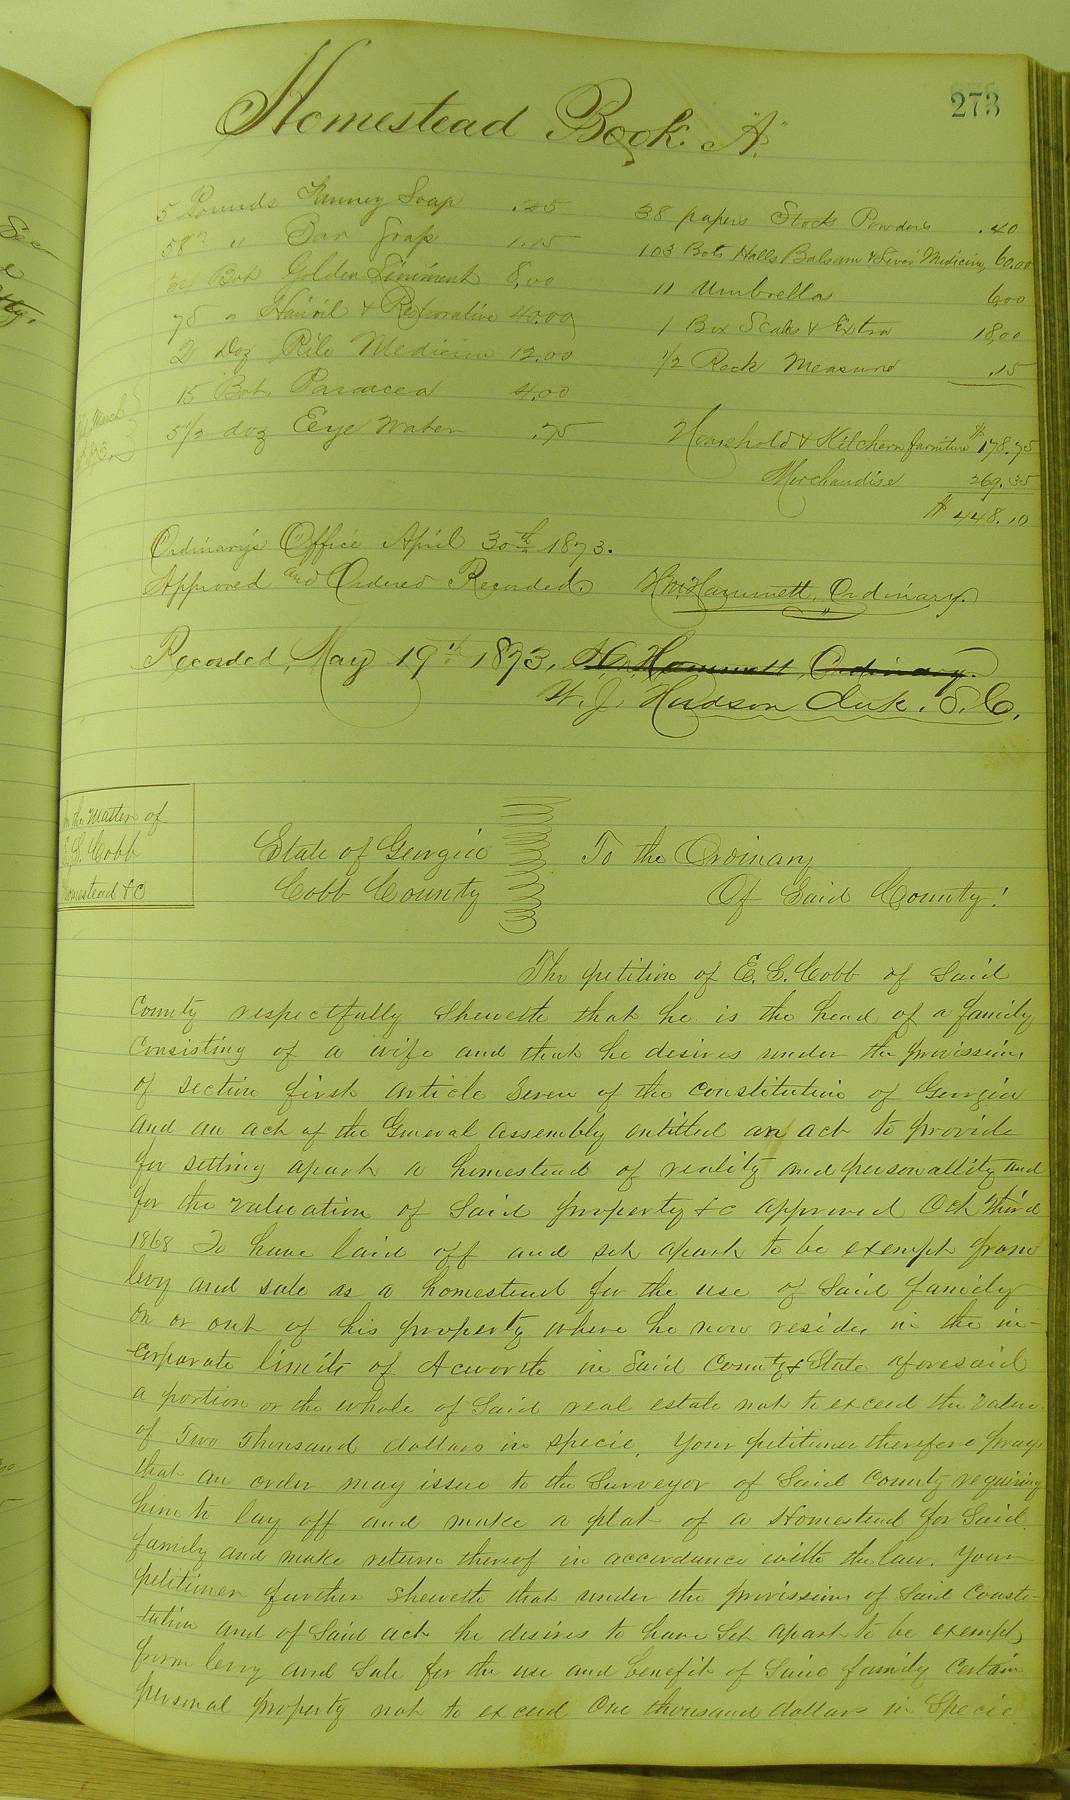 273
Homestead Book "A."
5 Pounds Fanncy Soap .25
58 " " Bar Soap 1.15
Bot Golden Liniment 8.00
78 " Hairoil & Restorative 40.00
2 Doz Pile Medicine 12.00
15 Bot. Panacea 4.00
5 1/2 doz Eeye Water .75
38 papers Stock Powders .40
103 Bots Halls Balsam & Liver Medicine, 60.00
11 Umbrella 6.00
1 Box Scales & Extra 18.00
1/2 Peck Measure .15
Household & Kitchen furniture $178.75
Merchandise 269.35
$448.10
Ordinary's Office April 30th 1873.
Approved and Ordered Recorded. Hammett, Ordinary.
Recorded, May 19th 1873. Hammett Ordinary.
W. J. Hudson Clerk. S. C.
In the Matter of
Cobb
Homestead &C
State of Georgia
Cobb County
To the Ordinary
Of Said County!
The petition of E. C. Cobb of Said
County respectfully Sheweth that he is the head of a family
Consisting of a wife and that he desires under the provissions
of section first article Seven of the constitution of Georgia
and an act of the General assembly entitled an act to provide
for setting apart a homestead of reality and personallity and
for the valuation of Said property &c approved Oct third
1868 To have laid off and set apart to be exempt from
levy and sale as a homestead for the use of Said family
on or out of his property where he now resides in the in-
corporate limits of Acworth in Said County & State aforesaid
a portion or the whole of Said real estate not to exceed the value
of Two Thousand dollars in specie. Your petitioner therefore prays
that an order may issue to the Surveyor of Said County requiring
him to lay off and make a plat of a Homestead for Said
family and make return thereof in accordance with the law. Your
petitioner further sheweth that under the provissions of Said Consti-
tution and of Said act he desires to have Set apart to be exempt
from levy and Sale for the use and benefit of Said family Certain
personal property not to exceed One thousand dollars in Specie